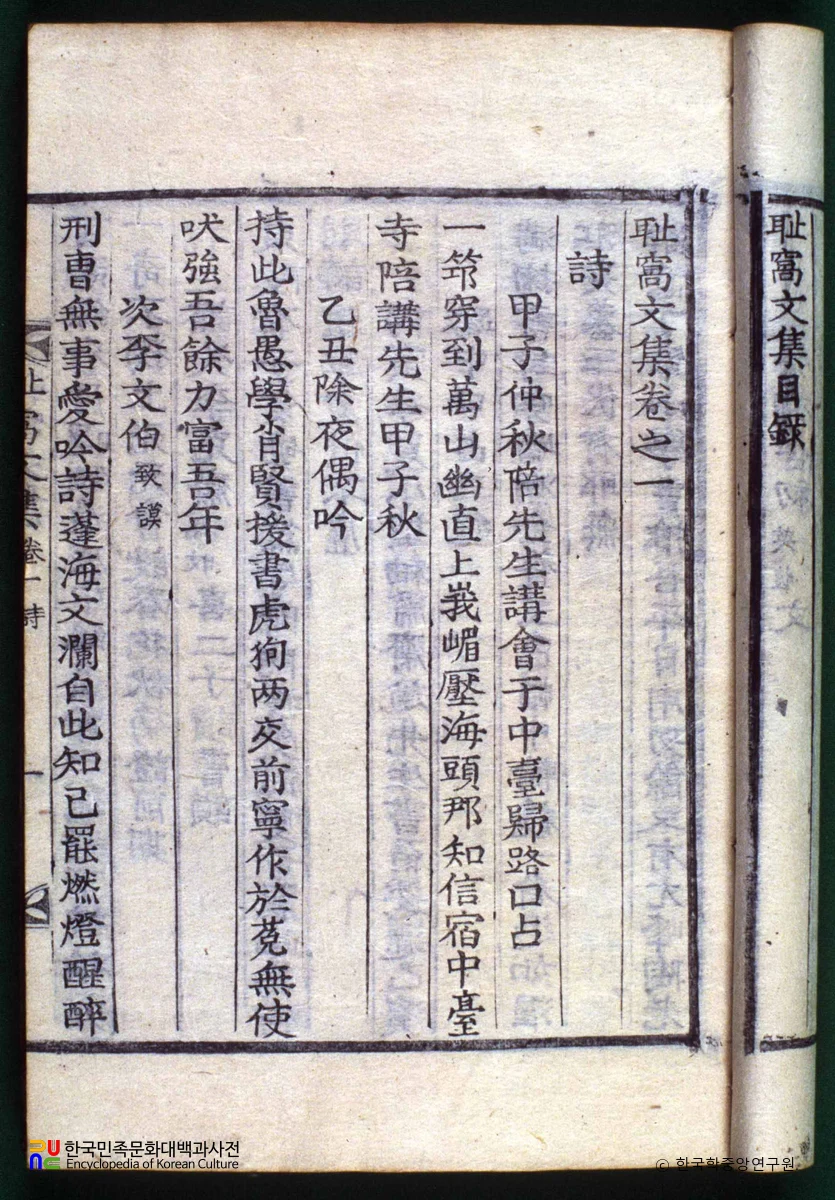 耻窩文集目錄
耻窩文集卷之一
詩
甲子仲秋陪先生講會于中臺歸路口占
一筇穿到萬山幽直上峩嵋壓海頭那知信宿中臺
寺陪講先生甲子秋
乙丑除夜偶吟
持此魯愚學肖賢援書虎狗两交前寧作於菟無使
吠強吾餘力富吾年
次李文伯致謨
刑曺無事愛吟詩蓬海文瀾自此知已罷燃燈醒醉
耻窩文集卷一 詩 一
한국민족문화대백과사전
Encyclopedia of Korean Culture
© 한국학중앙연구원